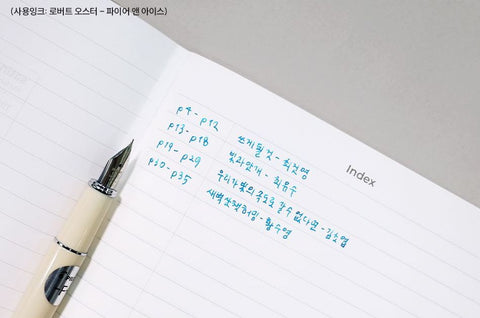 (사용잉크: 로버트 오스터 - 파이어 앤 아이스)
Index
p4 - p12 쓰게 될 것 - 최진영
p13 - p18 빛과 안개 - 최유수
p19 - p29 우리가 빛의 속도로 갈 수 없다면 - 김초엽
p30 - p35 새벽 산책 - 황수영